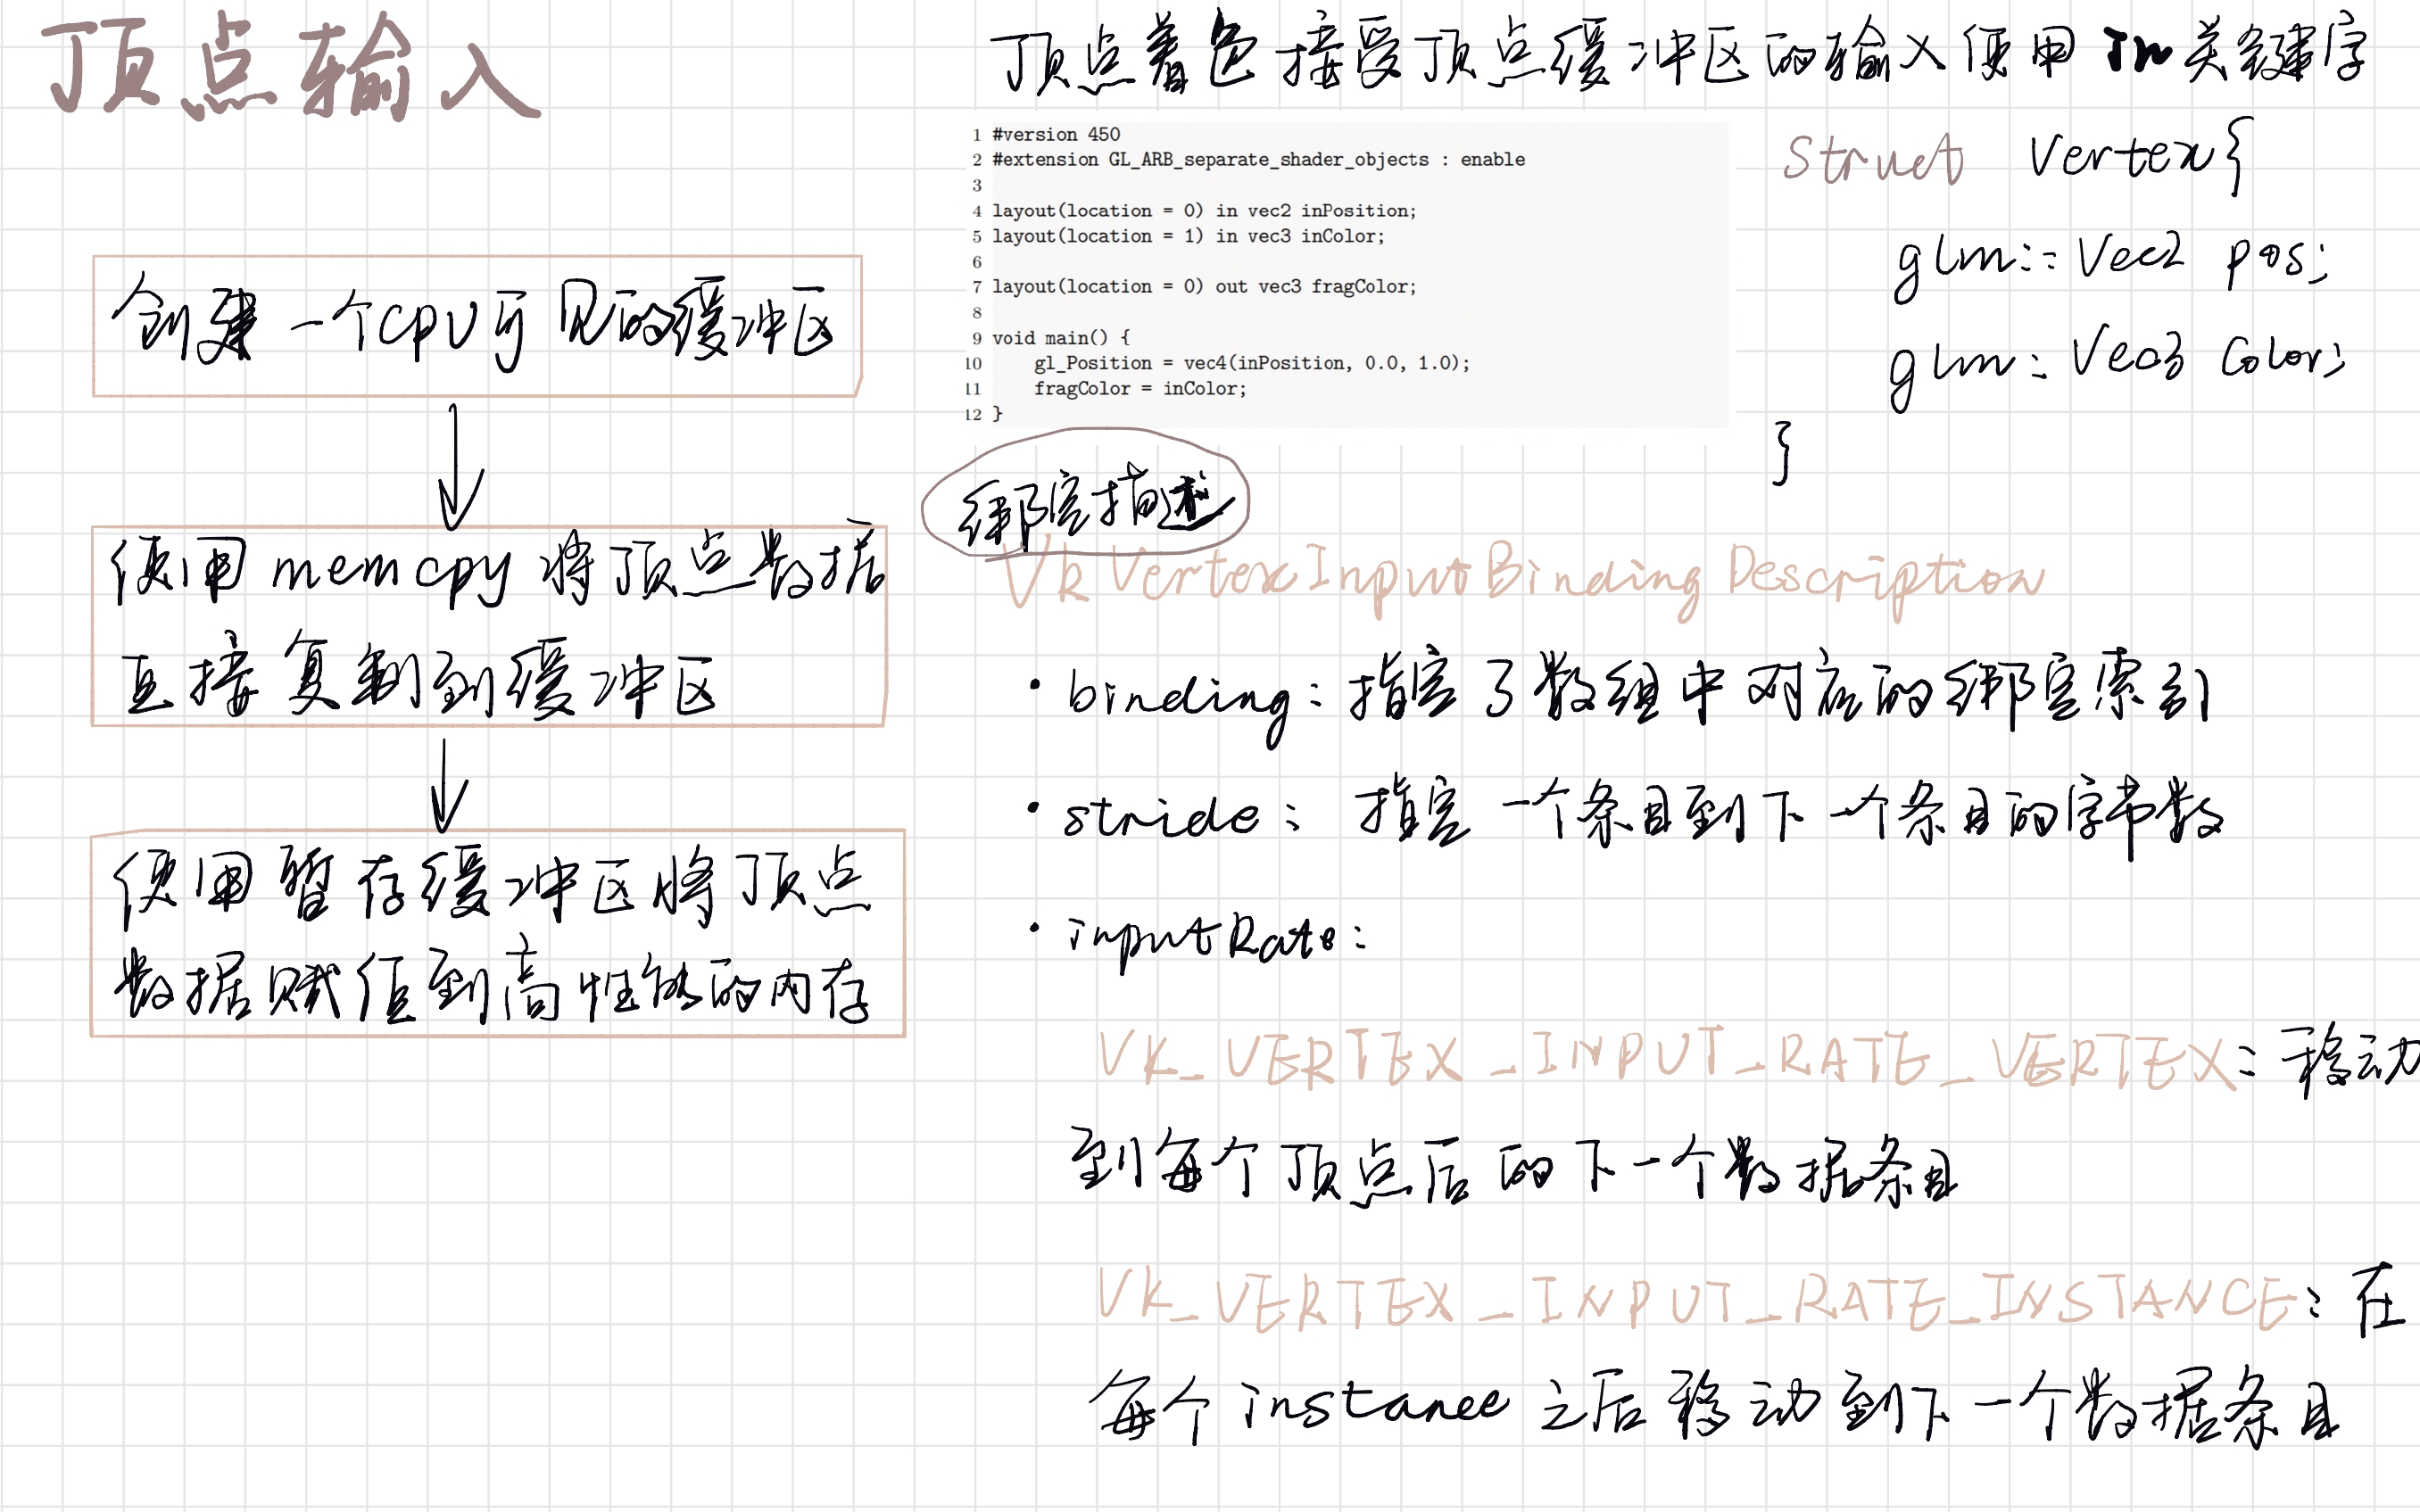 顶点输入
创建一个CPU可见的缓冲区
使用memcpy将顶点数据
直接复制到缓冲区
使用暂存缓冲区将顶点
数据赋值到高性能的内存
顶点着色接受顶点缓冲区的输入使用in关键字
1 #version 450
2 #extension GL_ARB_separate_shader_objects : enable
3
4 layout(location = 0) in vec2 inPosition;
5 layout(location = 1) in vec3 inColor;
6
7 layout(location = 0) out vec3 fragColor;
8
9 void main() {
10 gl_Position = vec4(inPosition, 0.0, 1.0);
11 fragColor = inColor;
12 }
Struct Vertex{
glm::Vec2 pos;
glm::Vec3 Color;
}
绑定描述
VkVertexInputBindingDescription
· binding：指定了数组中对应的绑定索引
· stride：指定一个条目到下一个条目的字节数
· inputRate：
VK_VERTEX_INPUT_RATE_VERTEX：移动
到每个顶点后的下一个数据条目
VK_VERTEX_INPUT_RATE_INSTANCE：在
每个instance之后移动到下一个数据条目